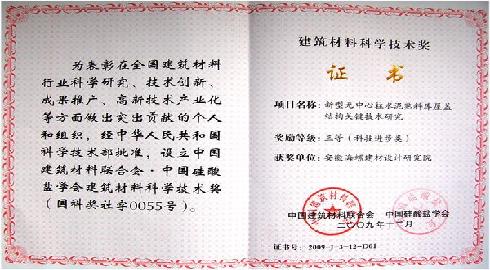 为表彰在全国建筑材料
行业科学研究、技术创新、
成果推广、高新技术产业化
等方面做出突出贡献的个人
和组织，经中华人民共和国
科学技术部批准，设立中国
建筑材料联合会·中国硅酸
盐学会建筑材料科学技术奖
（国科奖社字0055号）。
建筑材料科学技术奖
证书
项目名称：新型无中心柱水泥熟料库屋盖
结构关键技术研究
奖励等级：三等（科技进步奖）
获奖单位：安徽海螺建材设计研究院
中国建筑材料联合会 中国硅酸盐学会
二〇〇九年十二月
证书号：2009-J-3-12-D01